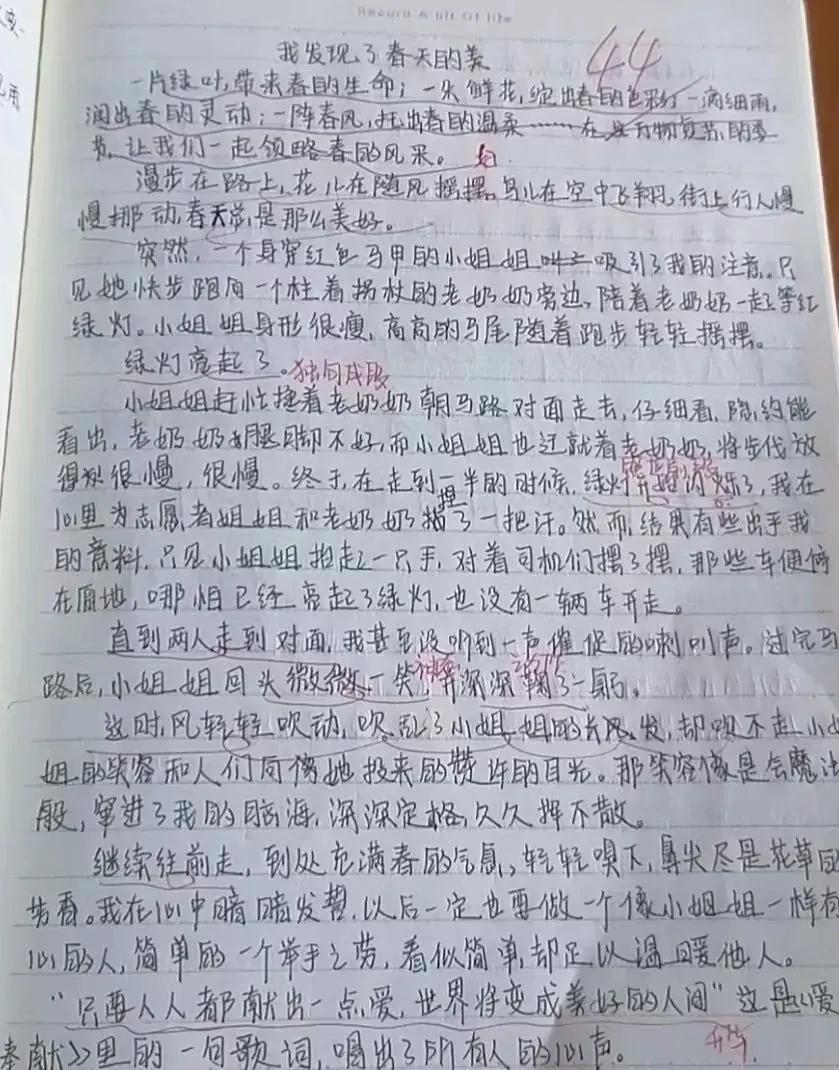 Record A bit Of life
我发现了春天的美
44
一片绿叶,带来春的生命;一朵鲜花,绽出春的色彩;一滴细雨,
润出春的灵动;一阵春风,托出春的温柔……在这万物复苏的季
节,让我们一起领略春的风采。
漫步在路上,花儿在随风摇摆,鸟儿在空中飞翔,街上行人慢
慢挪动,春天总是那么美好。
突然,一个身穿红色马甲的小姐姐吸引了我的注意。只
见她快步跑向一个柱着拐杖的老奶奶旁边,陪着老奶奶一起等红
绿灯。小姐姐身形很瘦,高高的马尾随着跑步轻轻摇摆。
绿灯亮起了。独句成段
小姐姐赶忙搀着老奶奶朝马路对面走去,仔细看,隐约能
看出,老奶奶腿脚不好,而小姐姐也迁就着老奶奶,将步伐放
得很慢,很慢。终于,在走到一半的时候,绿灯开始闪烁了,我在
心里为志愿者姐姐和老奶奶捏了一把汗。然而,结果有些出乎我
的意料,只见小姐姐抬起一只手,对着司机们摆了摆,那些车便停
在原地,哪怕已经亮起了绿灯,也没有一辆车开走。
直到两人走到对面,我甚至没听到一声催促的喇叭声。过完马
路后,小姐姐回头微微一笑,并深深鞠了一躬。
这时,风轻轻吹动,吹乱了小姐姐的长发,却吹不走小姐
姐的笑容和人们向像她投来的赞许的目光。那笑容像是会魔法
般,窜进了我的脑海,深深定格,久久挥不散。
继续往前走,到处充满春的气息,轻轻嗅下,鼻尖尽是花草的
芳香。我在心中暗暗发誓,以后一定也要做一个像小姐姐一样有
心的人,简单的一个举手之劳,看似简单,却足以温暖他人。
“只要人人都献出一点爱,世界将变成美好的人间”这是《爱
奉献》里的一句歌词,唱出了所有人的心声。